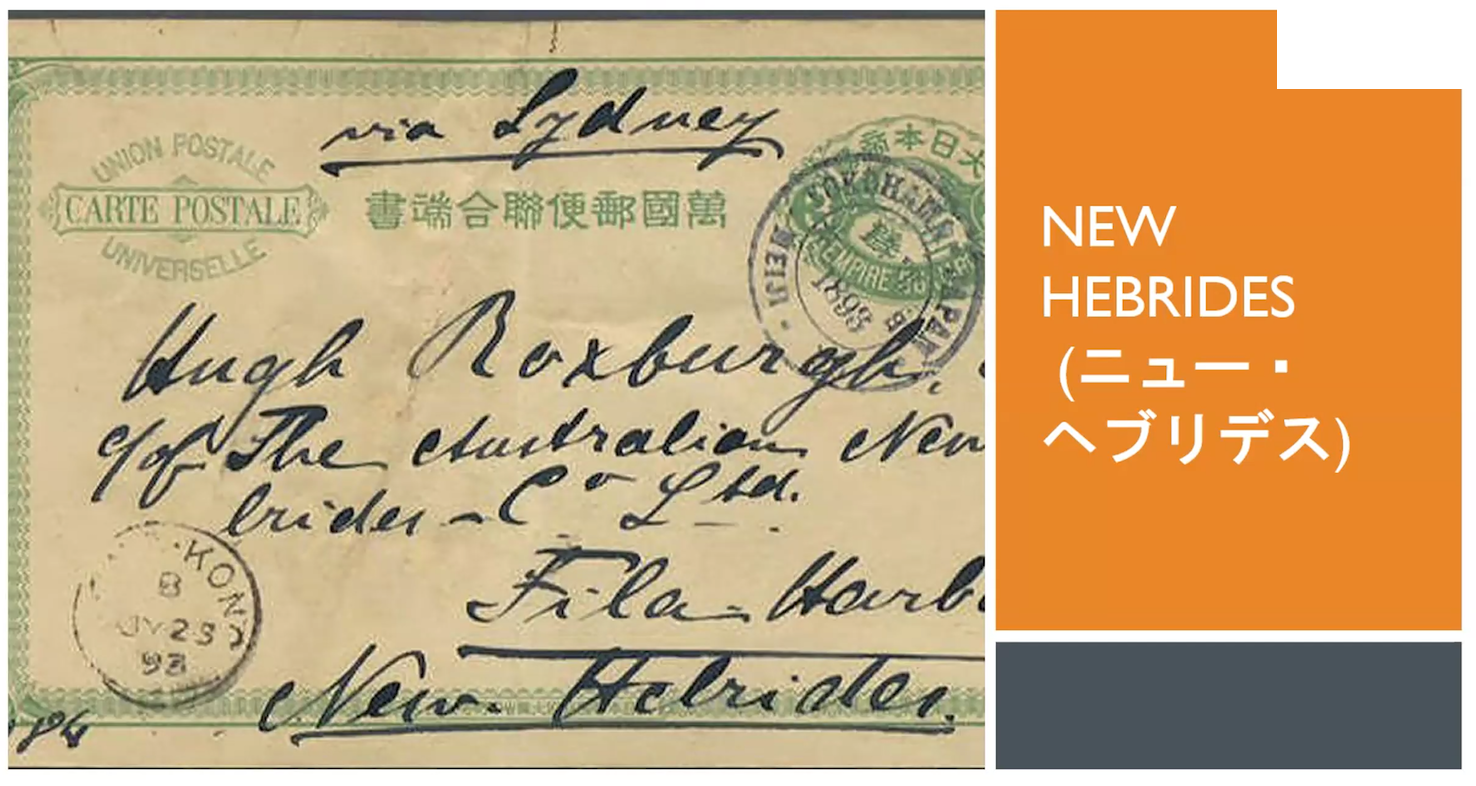 via Sydney
UNION POSTALE
CARTE POSTALE
UNIVERSELLE
書端合聯便郵國萬
YOKOHAMA JAPAN
1893
MEIJI
Hugh Roxburgh,
c/o The Australian New
brides - Co Ltd.
Fila Harb
New Hebrides.
KONG
B
JY 23
93
NEW
HEBRIDES
(ニュー・
ヘブリデス)